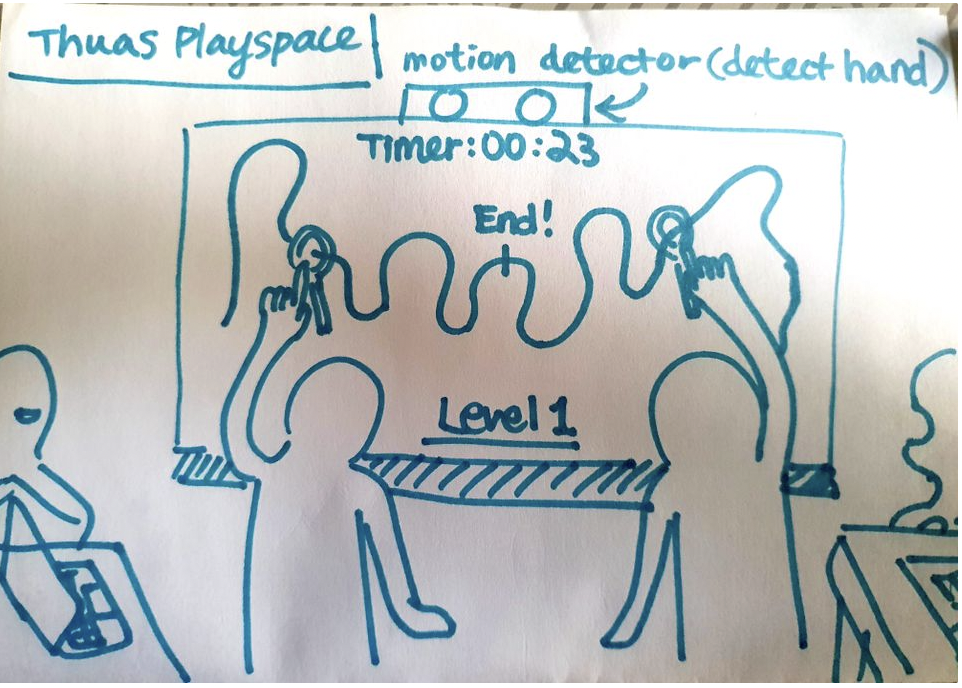 Thuas Playspace
motion detector (detect hand)
Timer: 00:23
End!
Level 1